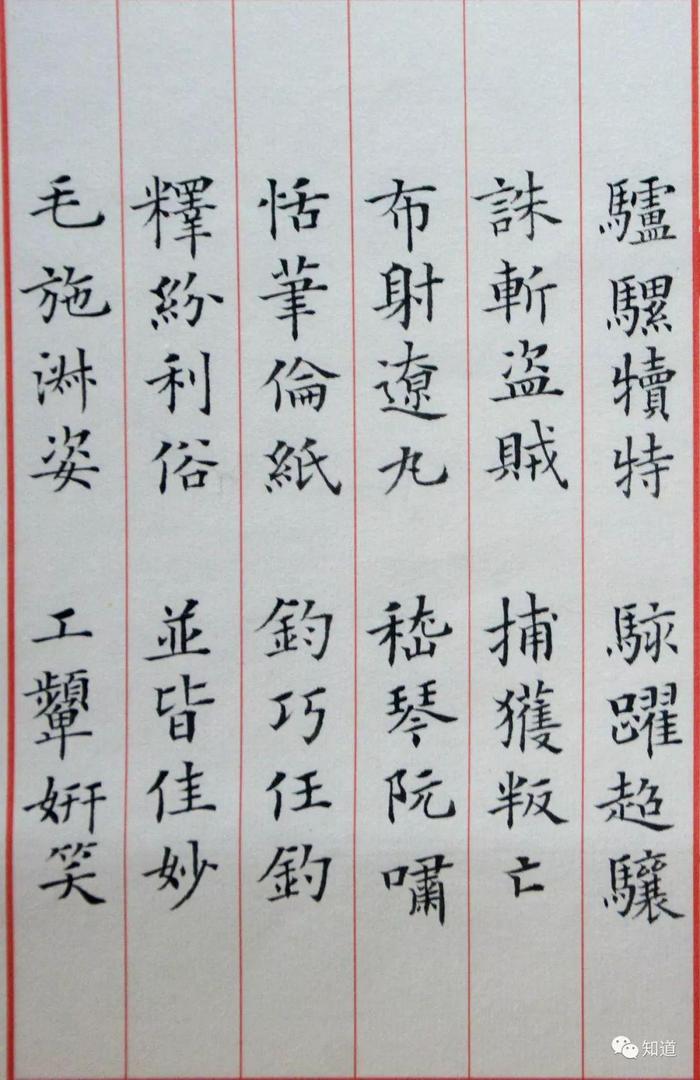 驢騾犢特 駭躍超驤
誅斬盜賊 捕獲叛亡
布射遼丸 嵇琴阮嘯
恬筆倫紙 鈞巧任釣
釋紛利俗 並皆佳妙
毛施淑姿 工顰妍笑
知道